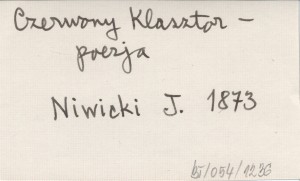 Czerwony Klasztor –
poezja
Niwicki J. 1873
BJ/054/1236